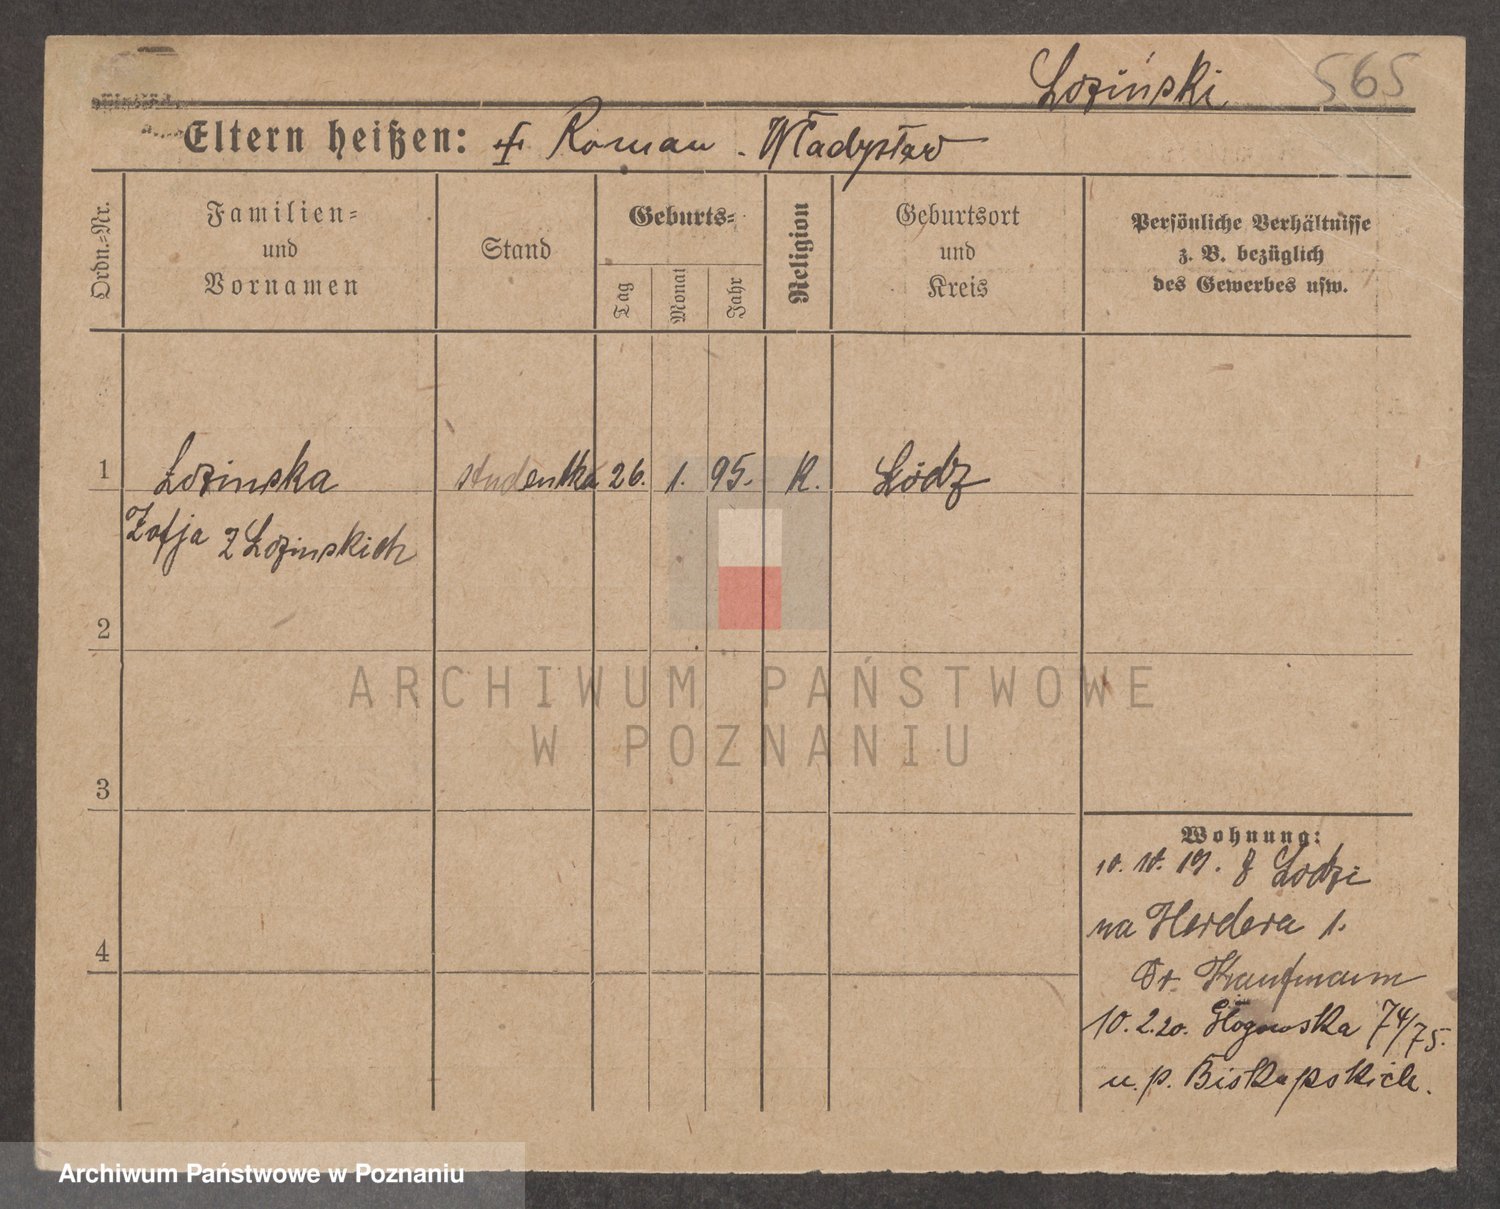 Łoziński 565
Eltern heißen: + Roman - Władysław
Ordn.=Nr.
Familien=
und
Vornamen
Stand
Geburts=
Tag
Monat
Jahr
Religion
Geburtsort
und
Kreis
Persönliche Verhältnisse
z. B. bezüglich
des Gewerbes usw.
1 Łozinska studentka 26. 1. 95. K. Łódz
Zofja z Łozinskich
2
3
4
Wohnung:
10. 10. 19. z Łodzi
na Herdera 1.
Dr. Kaufmann
10. 2. 20. Głogowska 74/75.
u. p. Biskupskich.
ARCHIWUM PAŃSTWOWE
W POZNANIU
Archiwum Państwowe w Poznaniu